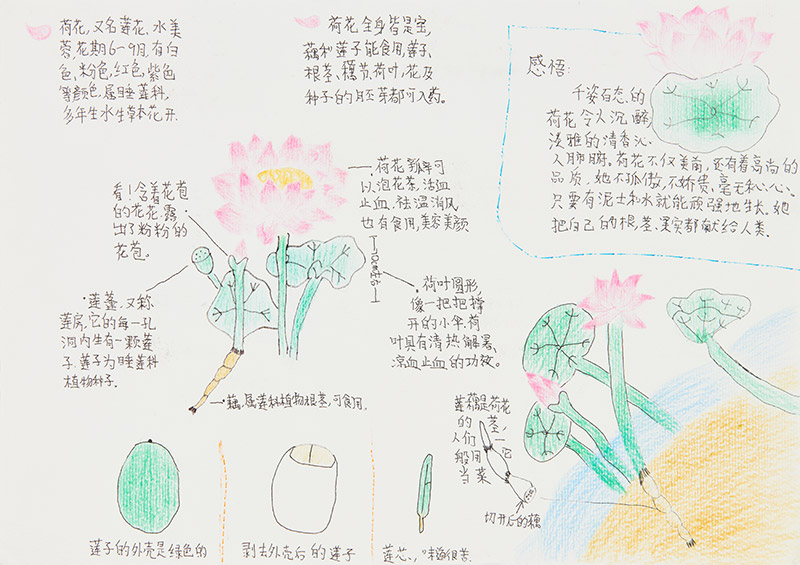 荷花,又名莲花、水美
蓉花期6~9月.有白
色,粉色,红色,紫色
等颜色,属睡莲科,
多年生水生草本花卉.
荷花全身皆是宝,
藕和莲子能食用,莲子、
根茎、藕节、荷叶,花及
种子的胚芽都可入药。
感悟:
千姿百态的
荷花令人沉醉,
淡雅的清香沁
人肺腑。荷花不仅美丽,还有着高尚的
品质,她不孤傲,不娇贵,毫无私心。
只要有泥土和水就能顽强地生长。她
把自己的根,茎、果实都献给人类.
荷花 可
以泡花茶,活血
止血、祛湿消风
也有食用,美容美颜
看!含着花苞
的花花,露
出了粉粉的
花苞。
莲蓬,又称
莲房,它的每一孔
洞内生有一颗莲
子.莲子为睡莲科
植物种子.
荷叶圆形,
像一把把撑
开的小伞.荷
叶具有清热解暑、
凉血止血的功效。
藕,属莲科植物根茎,可食用。
莲藕是荷花
的茎,
人们一
般用它
当菜
切开后的藕
莲子的外壳是绿色的
剥去外壳后的莲子
莲芯、味道很苦.